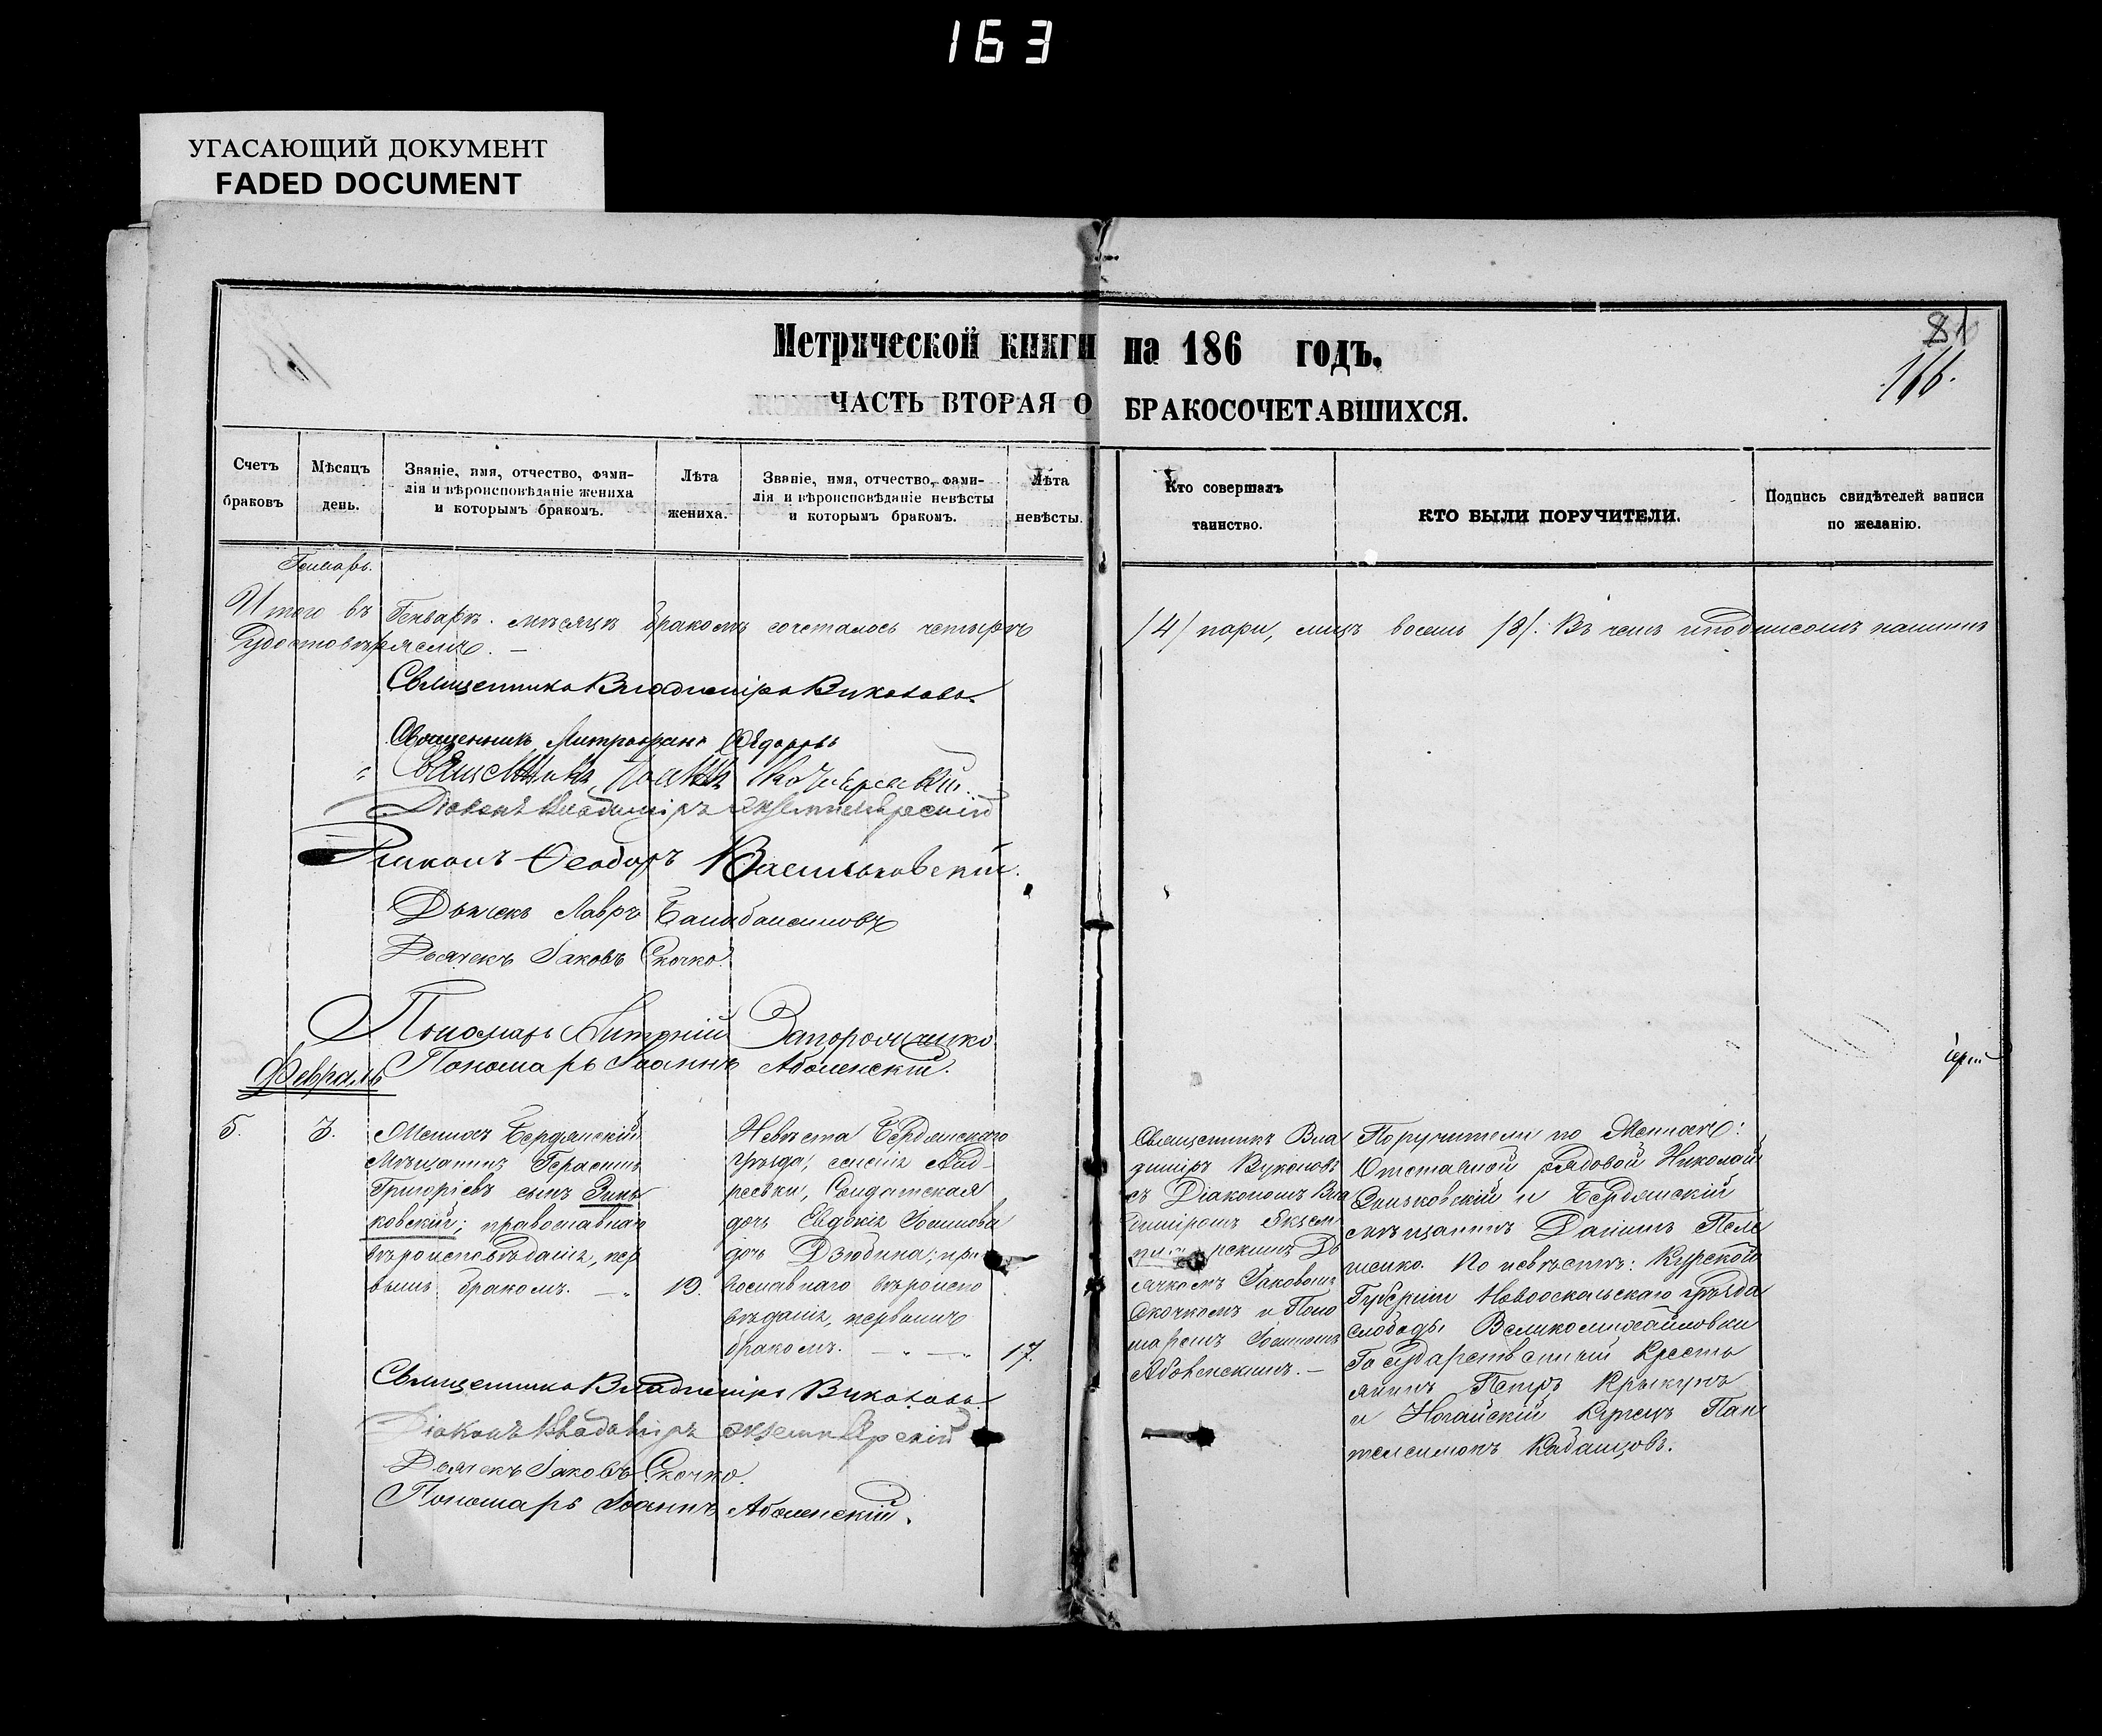 163
УГАСАЮЩИЙ ДОКУМЕНТ
FADED DOCUMENT
Метрической книги на 186 годъ.
81
166.
ЧАСТЬ ВТОРАЯ О БРАКОСОЧЕТАВШИХСЯ.
Счетъ браковъ.
Мѣсяцъ день.
Званіе, имя, отчество, фами-
лія и вѣроисповѣданіе жениха
и которымъ бракомъ.
Лѣта жениха.
Званіе, имя, отчество, фами-
лія и вѣроисповѣданіе невѣсты
и которымъ бракомъ.
Лѣта невѣсты.
Кто совершалъ
таинство.
КТО БЫЛИ ПОРУЧИТЕЛИ.
Подпись свидѣтелей записи
по желанію.
Генварь.
Итого въ Генварѣ мѣсяцѣ бракомъ сочеталось четыре /4/ пары, лицъ восемь /8/. Въ чемъ и подписомъ нашимъ
Удостовѣряемъ. —
Священникъ Владиміръ Вуколовъ.
Священникъ Митрофанъ Ѳедоровъ
Священникъ
Діаконъ Владиміръ Экземплярскій
Діаконъ Ѳеодоръ Васильковскій.
Дьячекъ Лавръ
Дьячекъ Іаковъ Скочко.
Пономарь
Пономарь Іоаннъ Аболенскій.
Февраль
5.
3.
Женихъ Бердянскій
Мѣщанинъ Герасимъ
Григоріевъ сынъ Зинь
ковскій; православнаго
вѣроисповѣданія, пер
вымъ бракомъ. —
19.
Невѣста Бердянскаго
Уѣзда, селенія Анд-
реевки, Солдатская
дочь Евдокія Іоаннова
дочь Дзюбина; пра
вославнаго вѣроиспо
вѣданія, первымъ
бракомъ. — —
17.
Священникъ Вла
диміръ Вуколовъ
съ Діакономъ Вла
диміромъ Экзем
плярскимъ Дь
ячкомъ Іаковомъ
Скочкомъ и Поно
маремъ Іоанномъ
Аболенскимъ. —
Поручители по Женихѣ:
Отставной рядовой Николай
Зиньковскій и Бердянскій
мѣщанинъ Даніилъ Пели
пенко. По невѣстѣ: Курской
Губерніи Новооскольскаго уѣзда
слободы Великомихайловки
Государственный Кресть
янинъ Петръ Крыкунъ
и Ногайскій Купецъ Пан
телеимонъ Кабанцовъ.
Священникъ Владиміръ Вуколовъ.
Діаконъ Владиміръ Экземплярскій
Дьячекъ Іаковъ Скочко.
Пономарь Іоаннъ Аболенскій.